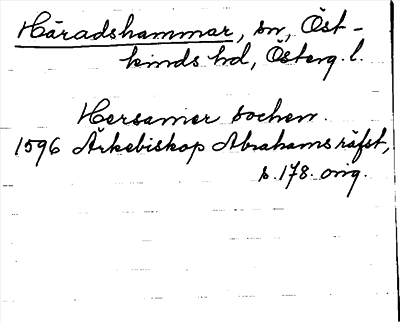 Häradshammar, sn, Öst-
kinds hd, Österg. l.
Hersamer sochen.
1596 Ärkebiskop Abrahams räfst,
s. 178. orig.